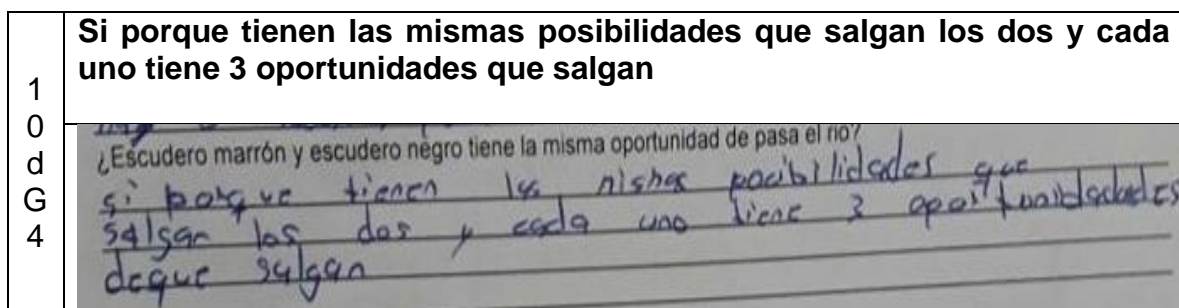 Si porque tienen las mismas posibilidades que salgan los dos y cada
uno tiene 3 oportunidades que salgan
1
0
d
G
4
¿Escudero marrón y escudero negro tiene la misma oportunidad de pasa el río?
si porque tienen las mishas pocibilidades que
salgan los dos y cada uno tiene 3 oportunidadades
deque salgan